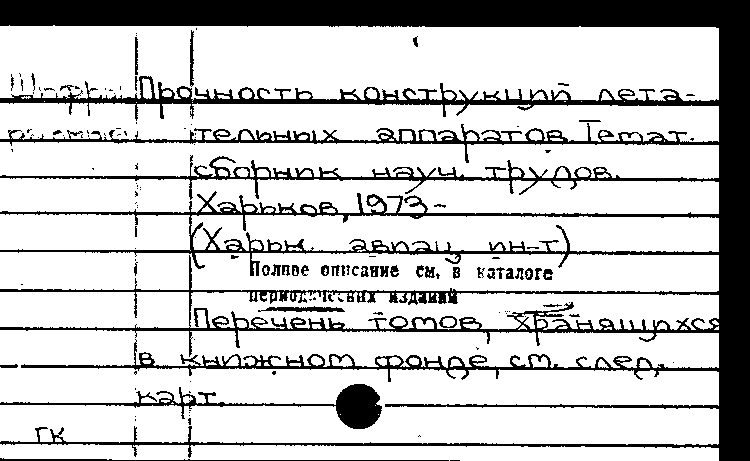 Шифры Прочность конструкций лета-
разные тельных аппаратов. Темат.
сборник науч. трудов.
Харьков, 1973-
(Харьк. авиац. ин-т)
Полное описание см. в каталоге
периодических изданий
Перечень томов, хранящихся
в книжном фонде, см. след.
карт.
ГК